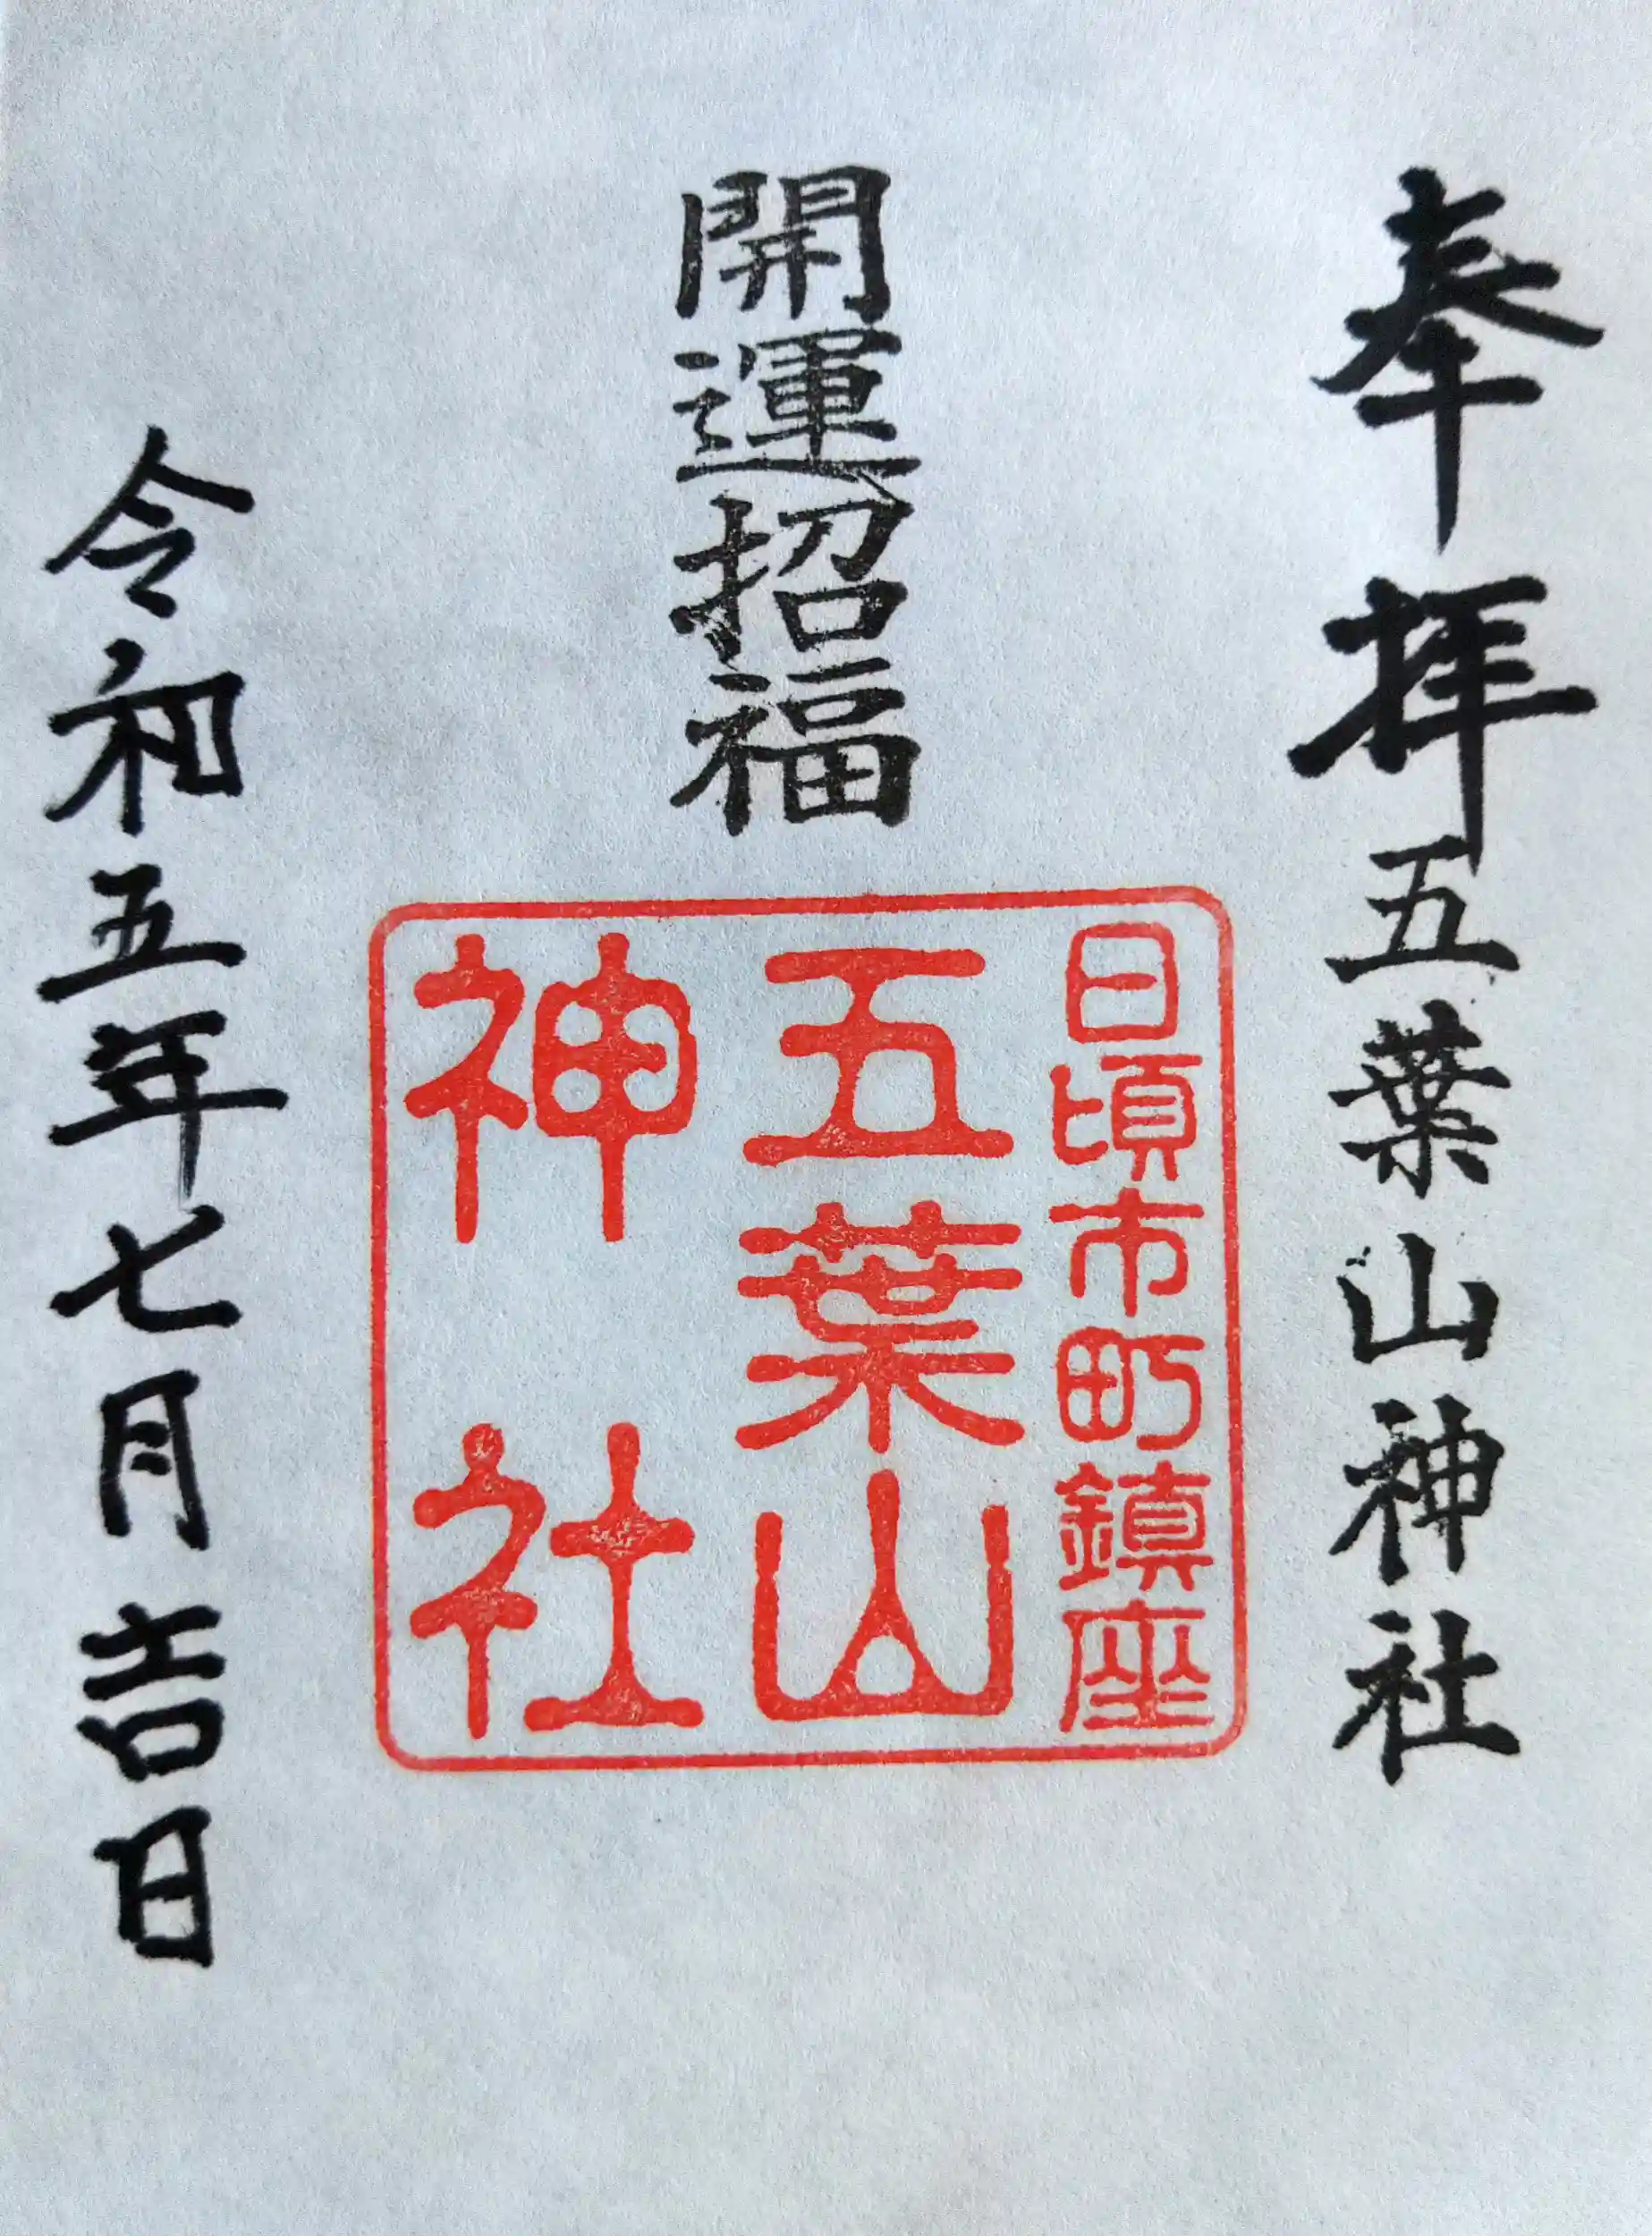 奉拝五葉山神社
開運招福
日頃市町鎮座
五葉山
神社
令和五年七月吉日